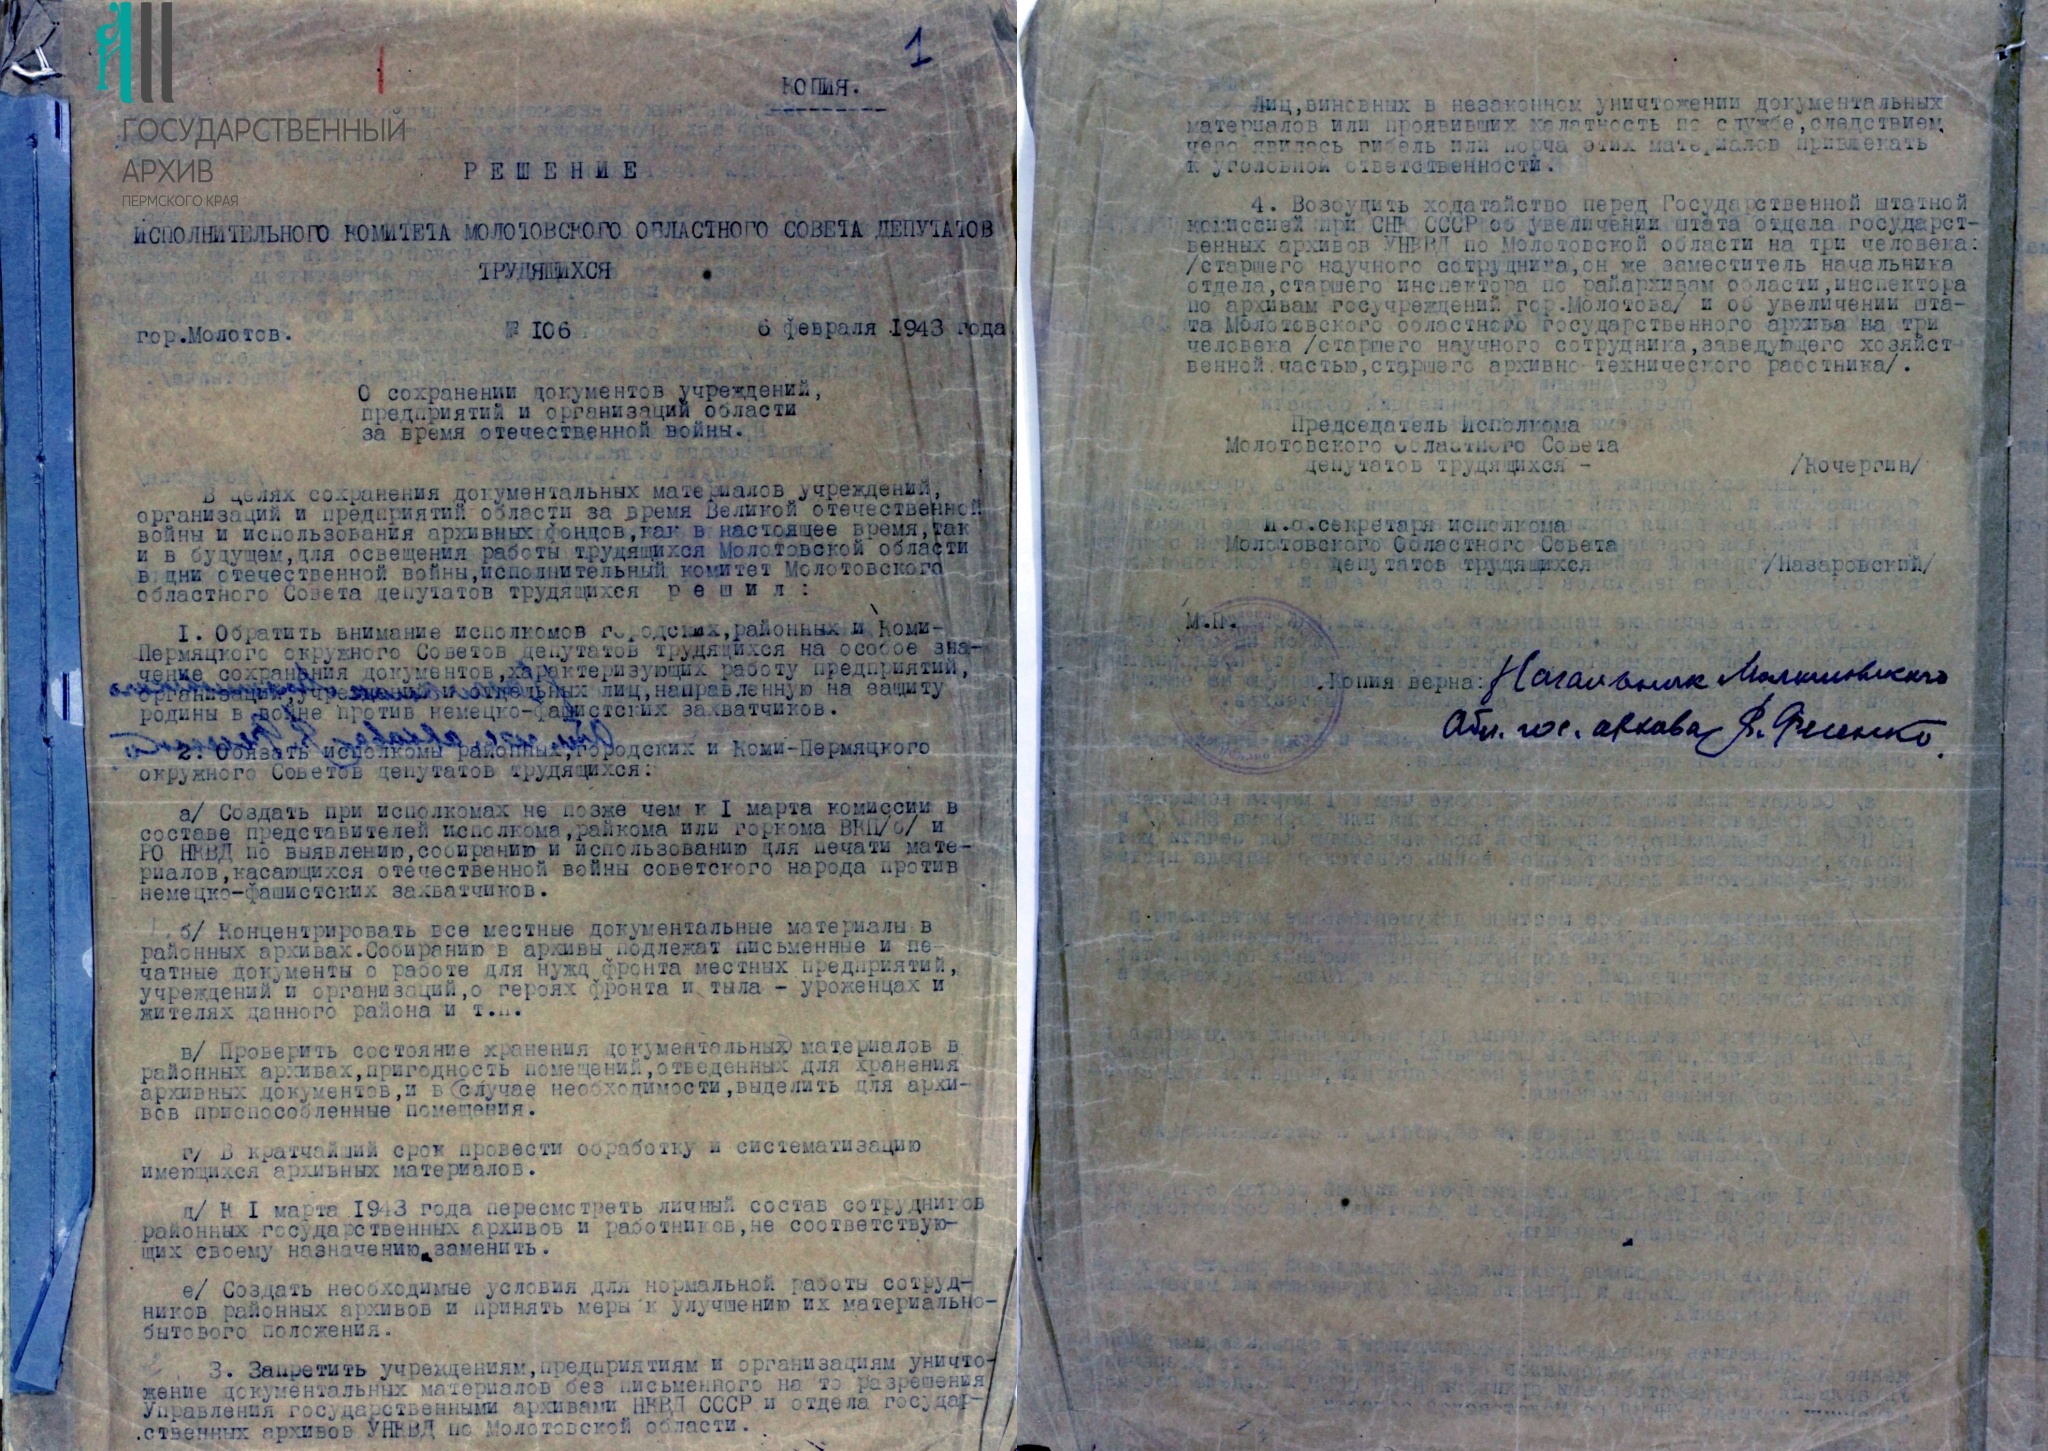 1
КОПИЯ.
ГОСУДАРСТВЕННЫЙ
АРХИВ
ПЕРМСКОГО КРАЯ
РЕШЕНИЕ
ИСПОЛНИТЕЛЬНОГО КОМИТЕТА МОЛОТОВСКОГО ОБЛАСТНОГО СОВЕТА ДЕПУТАТОВ
ТРУДЯЩИХСЯ
гор.Молотов. № 106 6 февраля 1943 года
О сохранении документов учреждений,
предприятий и организаций области
за время отечественной войны.
В целях сохранения документальных материалов учреждений,
организаций и предприятий области за время Великой отечественной
войны и использования архивных фондов,как в настоящее время,так
и в будущем,для освещения работы трудящихся Молотовской области
в дни отечественной войны,исполнительный комитет Молотовского
областного Совета депутатов трудящихся р е ш и л :
I. Обратить внимание исполкомов городских,районных и Коми-
Пермяцкого окружного Советов депутатов трудящихся на особое зна-
чение сохранения документов,характеризующих работу предприятий,
организаций,учреждений и отдельных лиц,направленную на защиту
родины в войне против немецко-фашистских захватчиков.
2. Обязать исполкомы районных,городских и Коми-Пермяцкого
окружного Советов депутатов трудящихся:
а/ Создать при исполкомах не позже чем к I марта комиссии в
составе представителей исполкома,райкома или горкома ВКП/б/ и
РО НКВД по выявлению,собиранию и использованию для печати мате-
риалов,касающихся отечественной войны советского народа против
немецко-фашистских захватчиков.
б/ Концентрировать все местные документальные материалы в
районных архивах.Собиранию в архивы подлежат письменные и пе-
чатные документы о работе для нужд фронта местных предприятий,
учреждений и организаций,о героях фронта и тыла - уроженцах и
жителях данного района и т.п.
в/ Проверить состояние хранения документальных материалов в
районных архивах,пригодность помещений,отведенных для хранения
архивных документов,и в случае необходимости,выделить для архи-
вов приспособленные помещения.
г/ В кратчайший срок провести обработку и систематизацию
имеющихся архивных материалов.
д/ К I марта 1943 года пересмотреть личный состав сотрудников
районных государственных архивов и работников,не соответствую-
щих своему назначению заменить.
е/ Создать необходимые условия для нормальной работы сотруд-
ников районных архивов и принять меры к улучшению их материально-
бытового положения.
3. Запретить учреждениям,предприятиям и организациям уничто-
жение документальных материалов без письменного на то разрешения
Управления государственными архивами НКВД СССР и отдела государ-
ственных архивов УНКВД по Молотовской области.
Лиц,виновных в незаконном уничтожении документальных
материалов или проявивших халатность по службе,следствием
чего явилась гибель или порча этих материалов привлекать
к уголовной ответственности.
4. Возбудить ходатайство перед Государственной штатной
комиссией при СНК СССР об увеличении штата отдела государст-
венных архивов УНКВД по Молотовской области на три человека:
/старшего научного сотрудника,он же заместитель начальника
отдела,старшего инспектора по райархивам области,инспектора
по архивам госучреждений гор.Молотова/ и об увеличении шта-
та Молотовского областного государственного архива на три
человека /старшего научного сотрудника,заведующего хозяйст-
венной частью,старшего архивно-технического работника/.
Председатель Исполкома
Молотовского Областного Совета
депутатов трудящихся - /Кочергин/
И.о.секретаря исполкома
Молотовского Областного Совета
депутатов трудящихся /Назаровский/
М.П.
Копия верна: Начальник Молотовского
Обл. гос. архива